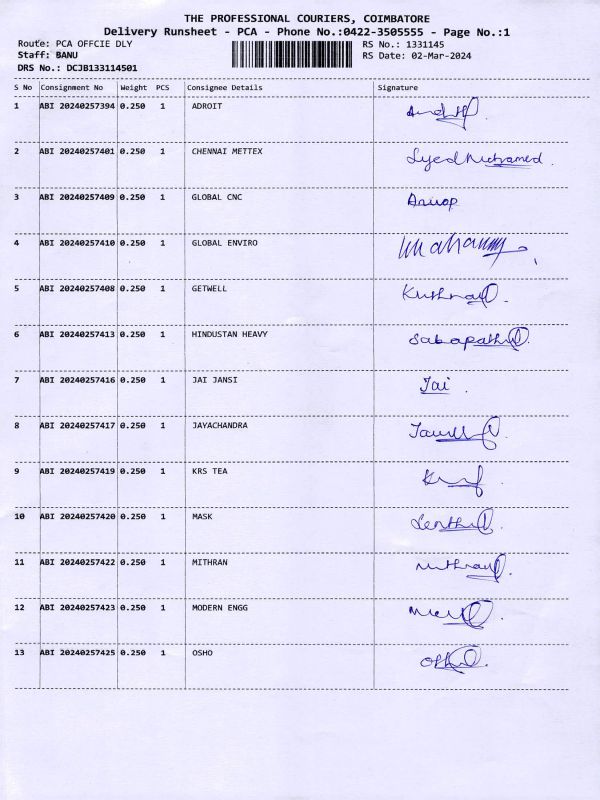 THE PROFESSIONAL COURIERS, COIMBATORE
Delivery Runsheet - PCA - Phone No.:0422-3505555 - Page No.:1
Route: PCA OFFCIE DLY RS No.: 1331145
Staff: BANU RS Date: 02-Mar-2024
DRS No.: DCJB133114501
S No Consignment No Weight PCS Consignee Details Signature
1 ABI 20240257394 0.250 1 ADROIT
2 ABI 20240257401 0.250 1 CHENNAI METTEX Syed Mohamed.
3 ABI 20240257409 0.250 1 GLOBAL CNC Anoop
4 ABI 20240257410 0.250 1 GLOBAL ENVIRO
5 ABI 20240257408 0.250 1 GETWELL
6 ABI 20240257413 0.250 1 HINDUSTAN HEAVY Sabapathi
7 ABI 20240257416 0.250 1 JAI JANSI Jai.
8 ABI 20240257417 0.250 1 JAYACHANDRA
9 ABI 20240257419 0.250 1 KRS TEA
10 ABI 20240257420 0.250 1 MASK Senthil
11 ABI 20240257422 0.250 1 MITHRAN
12 ABI 20240257423 0.250 1 MODERN ENGG
13 ABI 20240257425 0.250 1 OSHO